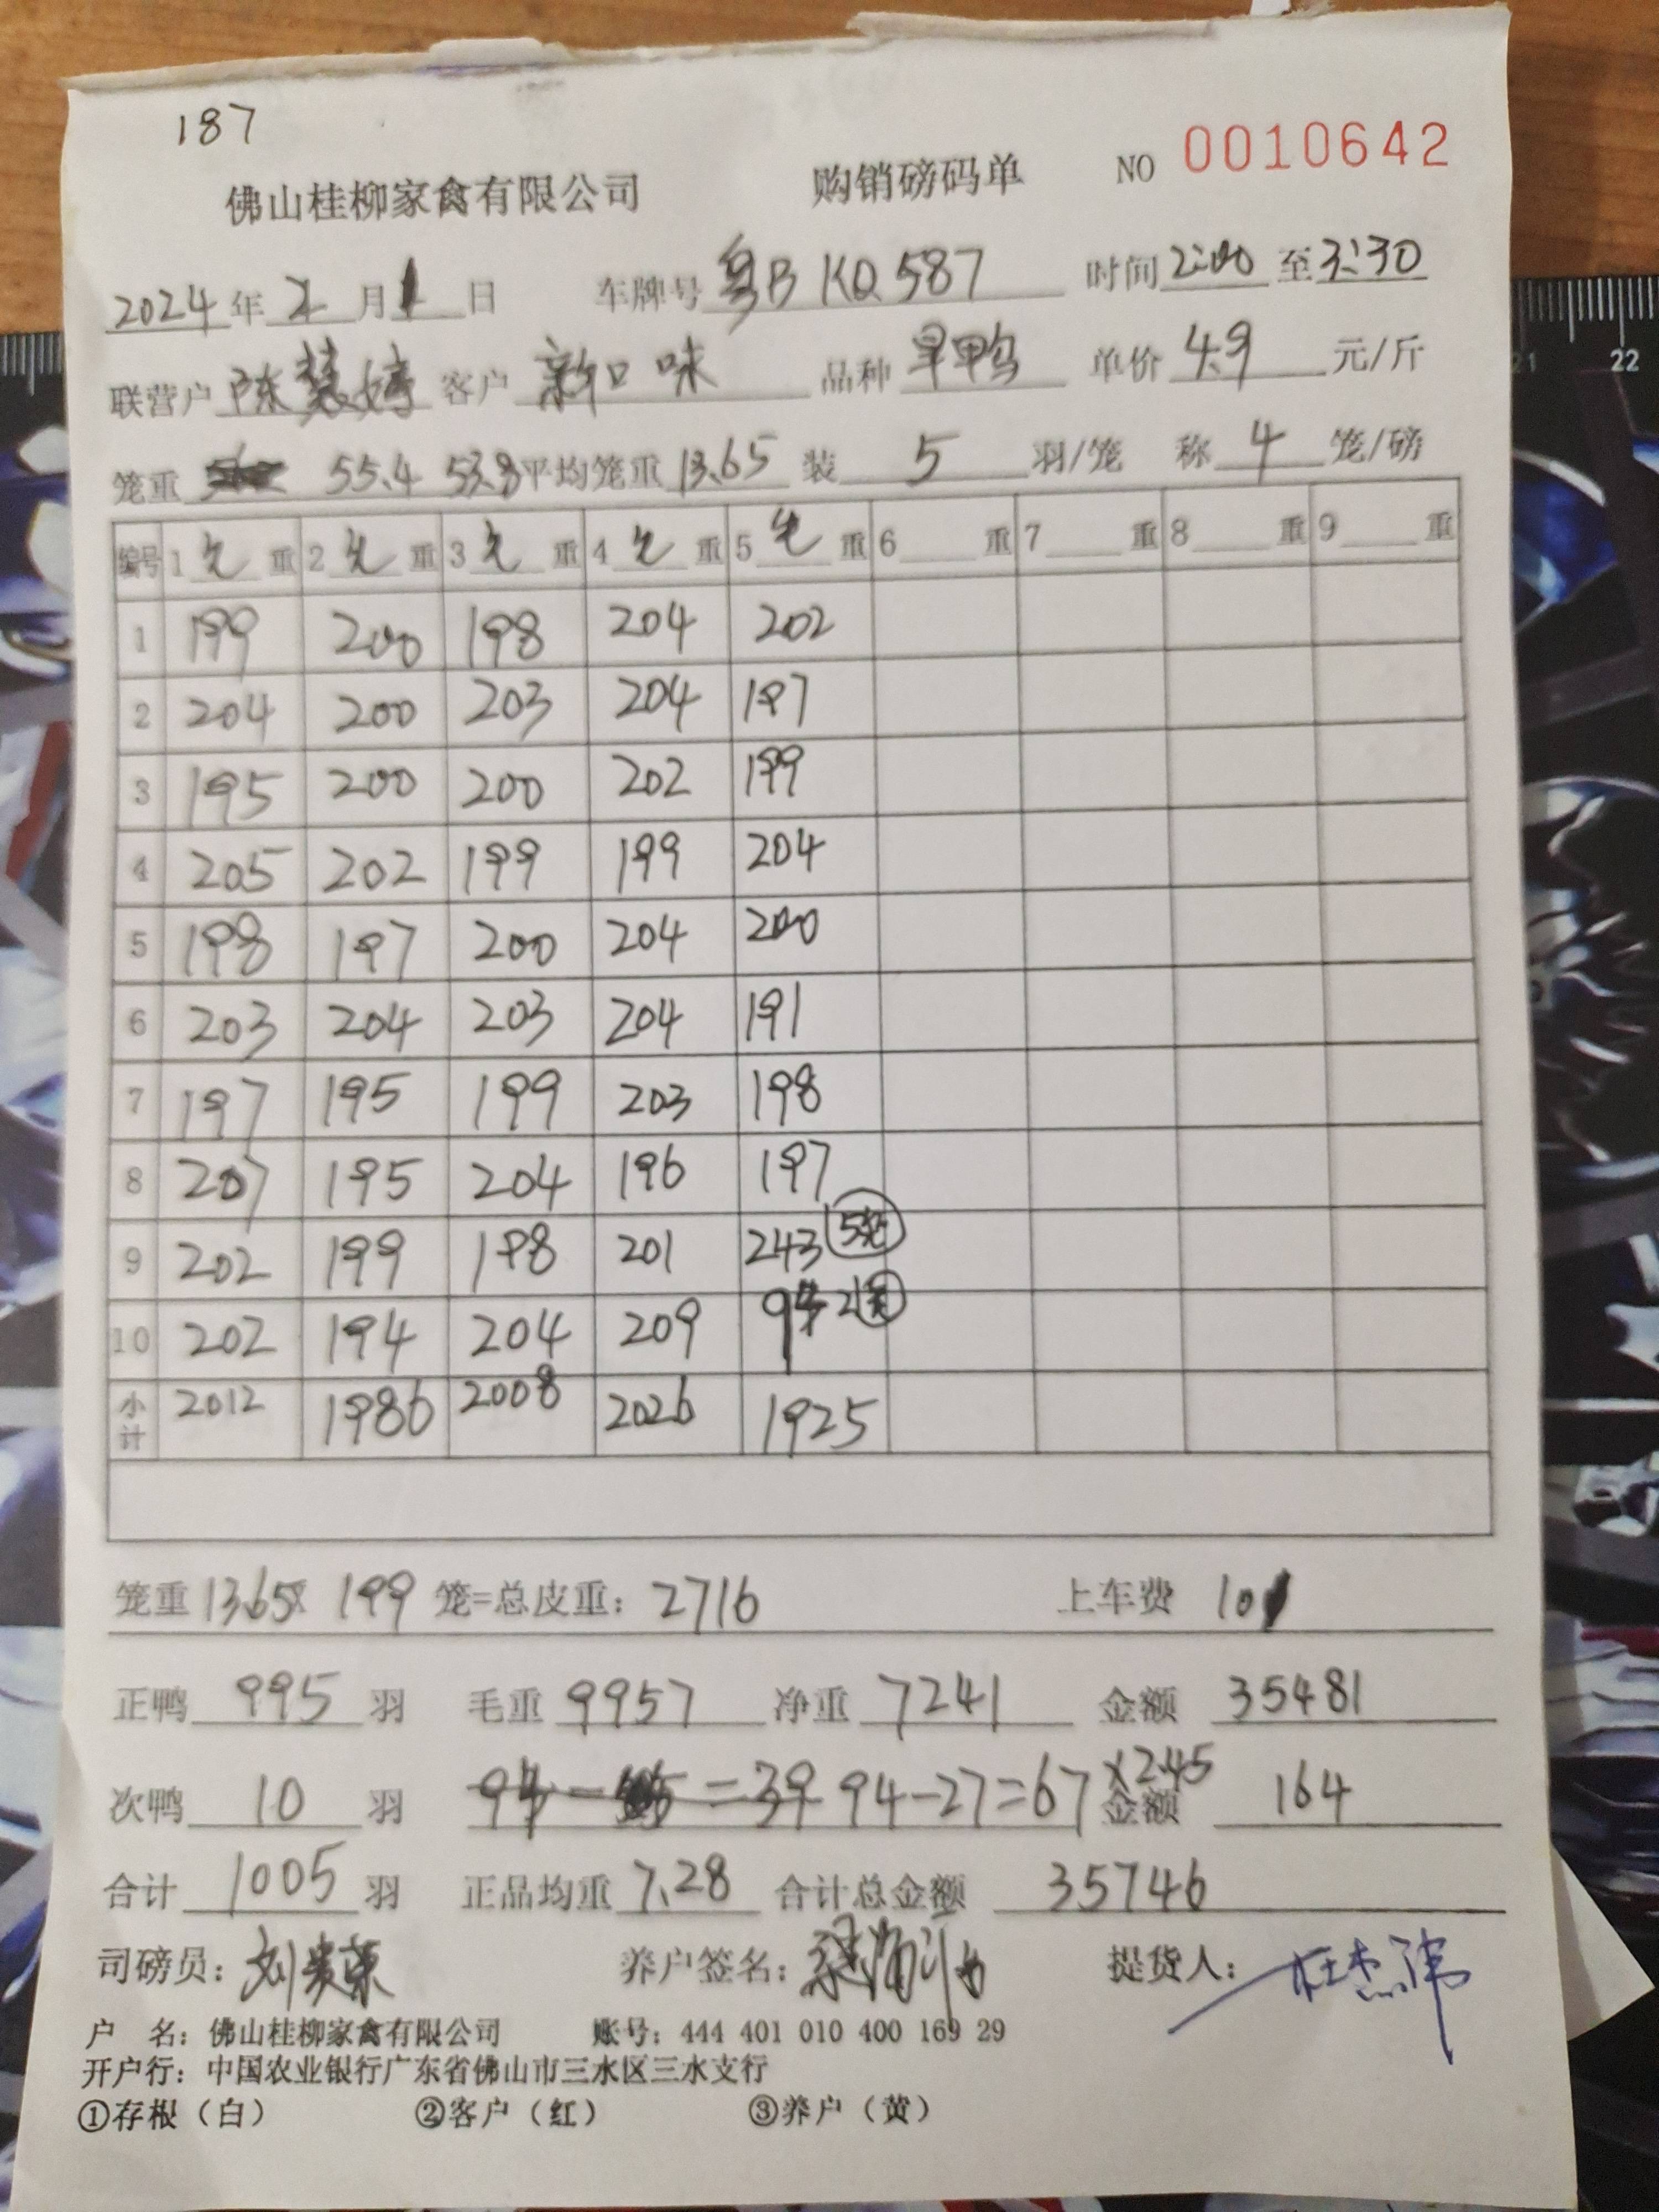 187
佛山桂柳家禽有限公司 购销磅码单 NO 0010642
2024年2月1日 车牌号 粤B KQ587 时间 2:00 至 3:30
联营户 陈慧婷 客户 新口味 品种 旱鸭 单价 4.9 元/斤
笼重 55.4 53.8 平均笼重 13.65 装 5 羽/笼 称 4 笼/磅
编号 1 毛 重 2 毛 重 3 毛 重 4 毛 重 5 毛 重 6 重 7 重 8 重 9 重
1 199 200 198 204 202
2 204 200 203 204 197
3 195 200 200 202 199
4 205 202 199 199 204
5 198 197 200 204 200
6 203 204 203 204 191
7 197 195 199 203 198
8 207 195 204 196 197
9 202 199 198 201 243
10 202 194 204 209 94
小计 2012 1986 2008 2026 1925
笼重 13.65X 199 笼=总皮重: 2716 上车费 101
正鸭 995 羽 毛重 9957 净重 7241 金额 35481
次鸭 10 羽 =39 94-27=67 ×2.45 金额 164
合计 1005 羽 正品均重 7.28 合计总金额 35746
司磅员: 养户签名: 提货人: 杜杰伟
户 名: 佛山桂柳家禽有限公司 账号: 444 401 010 400 169 29
开户行: 中国农业银行广东省佛山市三水区三水支行
①存根(白) ②客户(红) ③养户(黄)
21 22